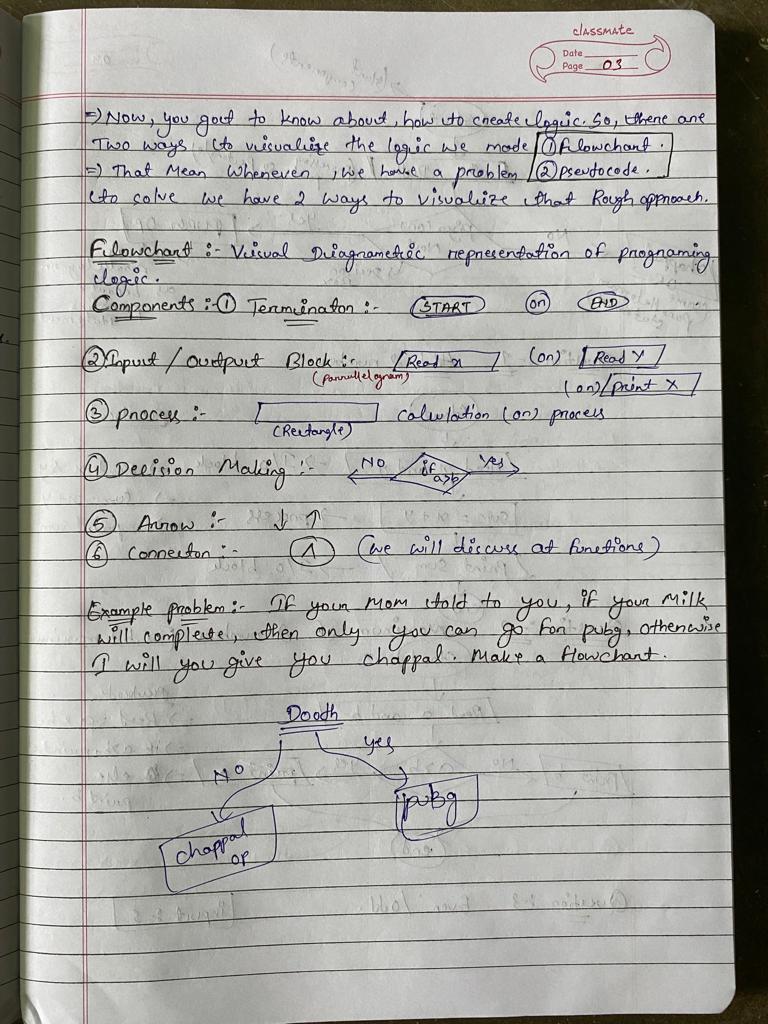 classmate
Date
Page 03
=) Now, you gout to know about, how to create logic. So, there are
Two ways to visualize the logic we made ① Flowchart.
=) That Mean Whenever, we have a problem ② pseudocode.
to solve we have 2 ways to visualize that Rough approach.
Flowchart :- Visual Diagrametric representation of programing
logic.
Components :- ① Terminator :- START (or) END
② Input / Output Block :- Read x (or) Read Y
(parrullelogram) (or) print X
③ process :- calculation (or) process
(Rectangle)
④ Decision Making :- NO if a>b Yes
⑤ Arrow :- ↓ ↑
⑥ Connector :- (we will discuss at functions)
Example problem :- If your Mom told to you, if your Milk
will complete, then only you can go for pubg, otherwise
I will you give you chappal. Make a flowchart.
Doodh
NO yes
pubg
chappal
op